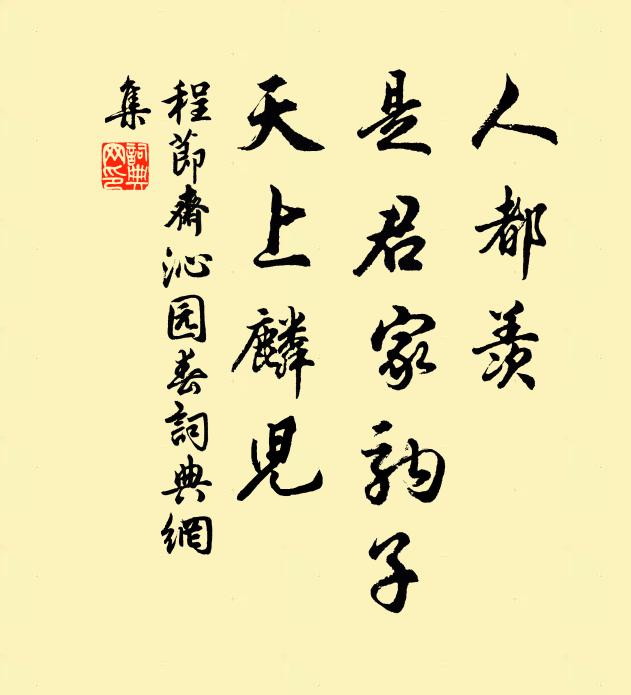 人都羨
是君家駒子
天上麟兒
程節齋沁园春詞典網
集
詞典
网印